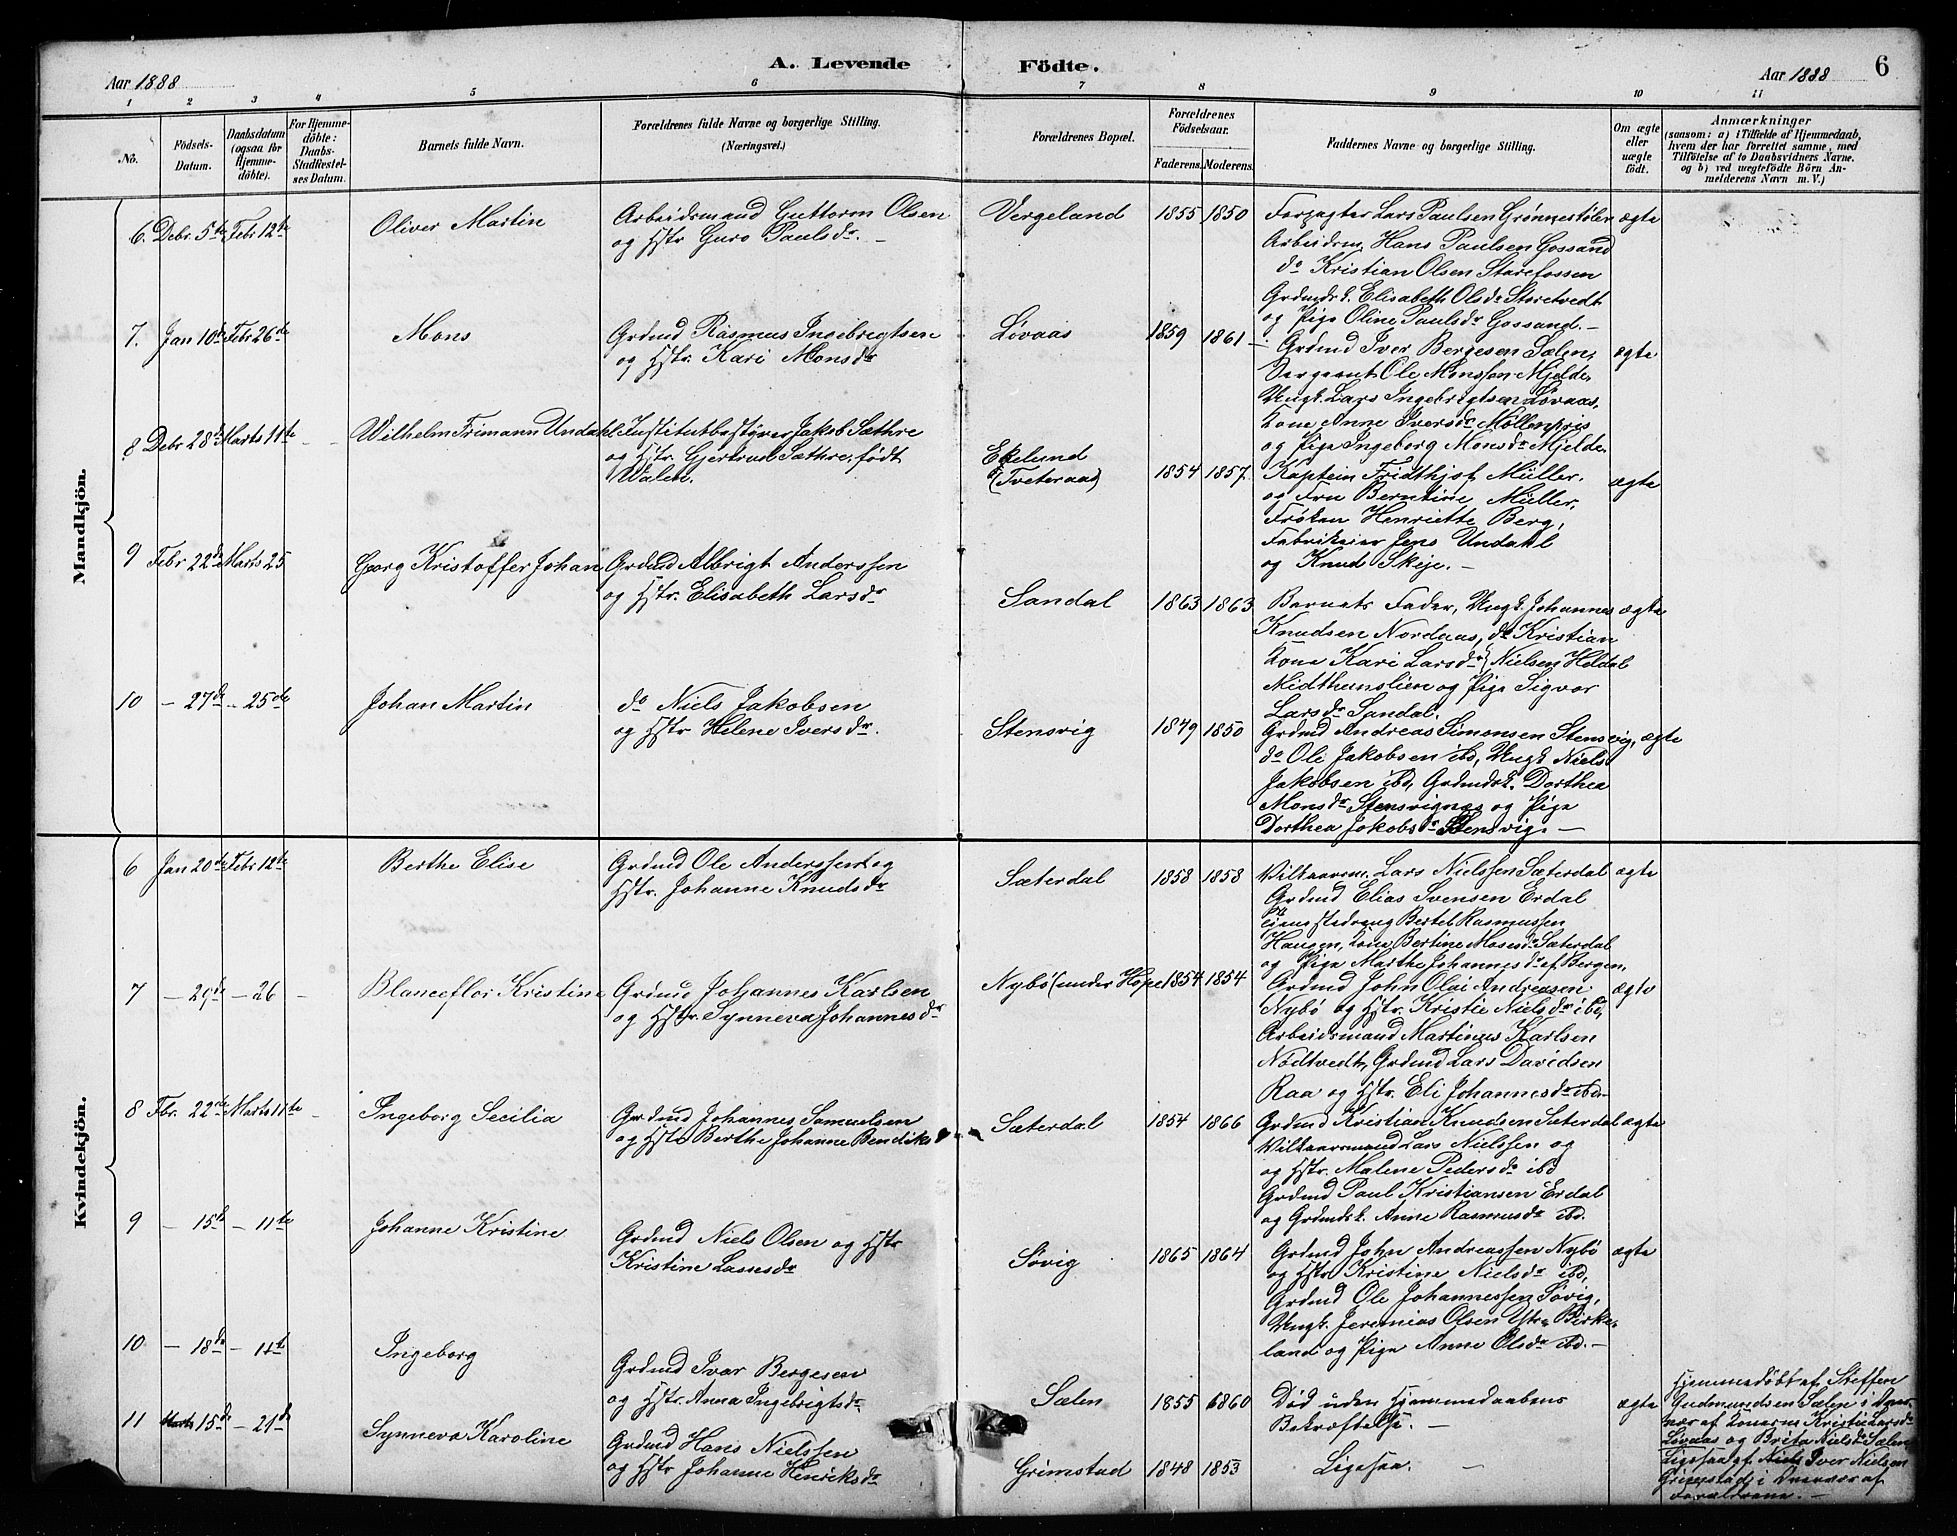 Aar 1888
A. Levende
Födte.
Aar 1888
6
1 2 3 4 5 6 7 8 9 10 11
No.
Födsels-
Datum.
Daabsdatum
(ogsaa for
Hjemme-
döbte).
For Hjemme-
döbte:
Daabs-
Stadfæstel-
ses Datum.
Barnets fulde Navn.
Forældrenes fulde Navne og borgerlige Stilling.
(Næringsvei.)
Forældrenes Bopæl.
Forældrenes
Födselsaar.
Faderens.
Moderens.
Faddernes Navne og borgerlige Stilling.
Om ægte
eller
uægte
födt.
Anmærkninger
(saasom: a) i Tilfælde af Hjemmedaab,
hvem der har forrettet samme, med
Tilföielse af to Daabsvidners Navne.
og b) ved uægtefödte Börn An-
melderens Navn m. V.)
Mandkjön.
6. Debr. 5te Febr 12te
Oliver Martin
Arbeidsmand Guttorm Olsen
og Hstr Guro Paulsdr. –
Vergeland
1855 1850
Forpagter Lars Paulsen Grønnestølen
Arbeidsm. Hans Paulsen Gossand
do Kristian Olsen Starefossen
Grdmdsk. Elisabeth Olsdr Storetvedt
og Pige Oline Paulsdr Gossand. –
ægte
7. Jan 10de Febr 26de
Mons
Grdmd Rasmus Ingebrigtsen
og Hstr. Kari Monsdr
Lövaas
1859 1861
Grdmd Iver Bergesen Sælen,
Sergeant Ole Monssen Mjelde,
Ungk. Lars Ingebrigtsen Lövaas,
Kone Anne Iversdr Möllenpris
og Pige Ingeborg Monsdr Mjelde.
ægte
8 Debr 28de Marts 11te
Wilhelm Frimann Undahl
Institutbestyrer Jakob Sæthre
og Hstr. Gjertrud Sæthre, født
Walen.
Ekelund
(Tveteraas)
1854 1857
Kaptein Fridthjof Müller.
og Fru Berntine Müller,
Frøken Henriette Berg,
Fabrikeier Jens Undahl
og Knud Skeje. –
ægte
9 Febr 22de Marts 25
Georg Kristoffer Johan
Grdmd Albrigt Anderssen
og Hstr. Elisabeth Larsdr
Sandal
1863 1863
Barnets Fader, Ungk. Johannes
Knudsen Nordaas, do Kristian
Kone Kari Larsdr (Nielsen Heldal
Midthunslien og Pige Sigvor
Larsdr Sandal.
ægte
10 – 27de – 25de
Johan Martin
do Niels Jakobsen
og Hstr Helene Iversdr.
Stensvig
1849 1850
Grdmd Andreas Simonsen Stensvig,
do Ole Jakobsen ibd, Ungk Niels
Jakobsen ibd, Grdmdsk. Dorthea
Monsdr Stensvignes og Pige
Dorthea Jakobsdr Stensvig. –
ægte
Kvindekjön.
6 Jan 20de Febr 12te
Berthe Elise
Grdmd Ole Anderssen og
Hstr. Johanne Knudsdr
Sæterdal
1858 1858
Vilkaarsm. Lars Nielssen Sæterdal
Grdmd Elias Svensen Erdal
Tjenestedreng Bertel Rasmussen
Haugen, Kone Bertine Mosesdr Sæterdal
og Pige Marthe Johannesdr af Bergen,
ægte
7 – 29de – 26 –
Blanceflor Kristine
Grdmd Johannes Karlsen
og Hstr. Synneva Johannesdr
Nybö (under Hope
1854 1854
Grdmd John Olai Andreasen
Nybö og Hstr. Kristie Nielsdr ibd,
Arbeidsmand Martinus Karlsen
Nödtvedt, Grdmd Lars Davidsen
Raa og Hstr. Eli Johannesdr ibd –
ægte
8 Fbr. 22de Marts 11te –
Ingeborg Secilia
Grdmd Johannes Samuelsen
og Hstr Berthe Johanne Bendiks
Sæterdal
1854 1866
Grdmd Kristian Knudsen Sæterdal
Vilkaarsmand Lars Nielssen og
og Hstr. Malene Pedersdr ibd
Grdmd Paul Kristiansen Erdal
og Grdmdsk. Anne Rasmusdr ibd.
ægte
9 – 15de – 11te
Johanne Kristine
Grdmd Niels Olsen og Hstr
Kristine Lassesdr
Søvig
1865 1864
Grdmd John Andreassen Nybö
og Hstr Kristine Nielsdr ibd,
Grdmd Ole Johannessen Søvig,
Ungk. Jeremias Olsen Ytre Birke-
land og Pige Anne Olsdr ibd. –
ægte
10 – 18de – 11te
Ingeborg
Grdmd Ivar Bergesen
og Hstr. Anna Ingebrigtsdr
Sælen
1855 1860
Død uden Hjemmedaabens
Bekræftelse. –
ægte
Hjemmedöbt af Steffen
Gudmundsen Sælen i Over-
vær af Konerne Kristie Larsdr
Lövaas og Brita Nielsdr Sælen
11 15de – 21de
Synneva Karoline
Grdmd Hans Nielssen
og Hstr Johanne Henriksdr
Grimstad
1848 1853
Ligesaa. –
Ligesaa af Niels Iver Nielsen
Grimstad i Overvær af
Forældrene. –